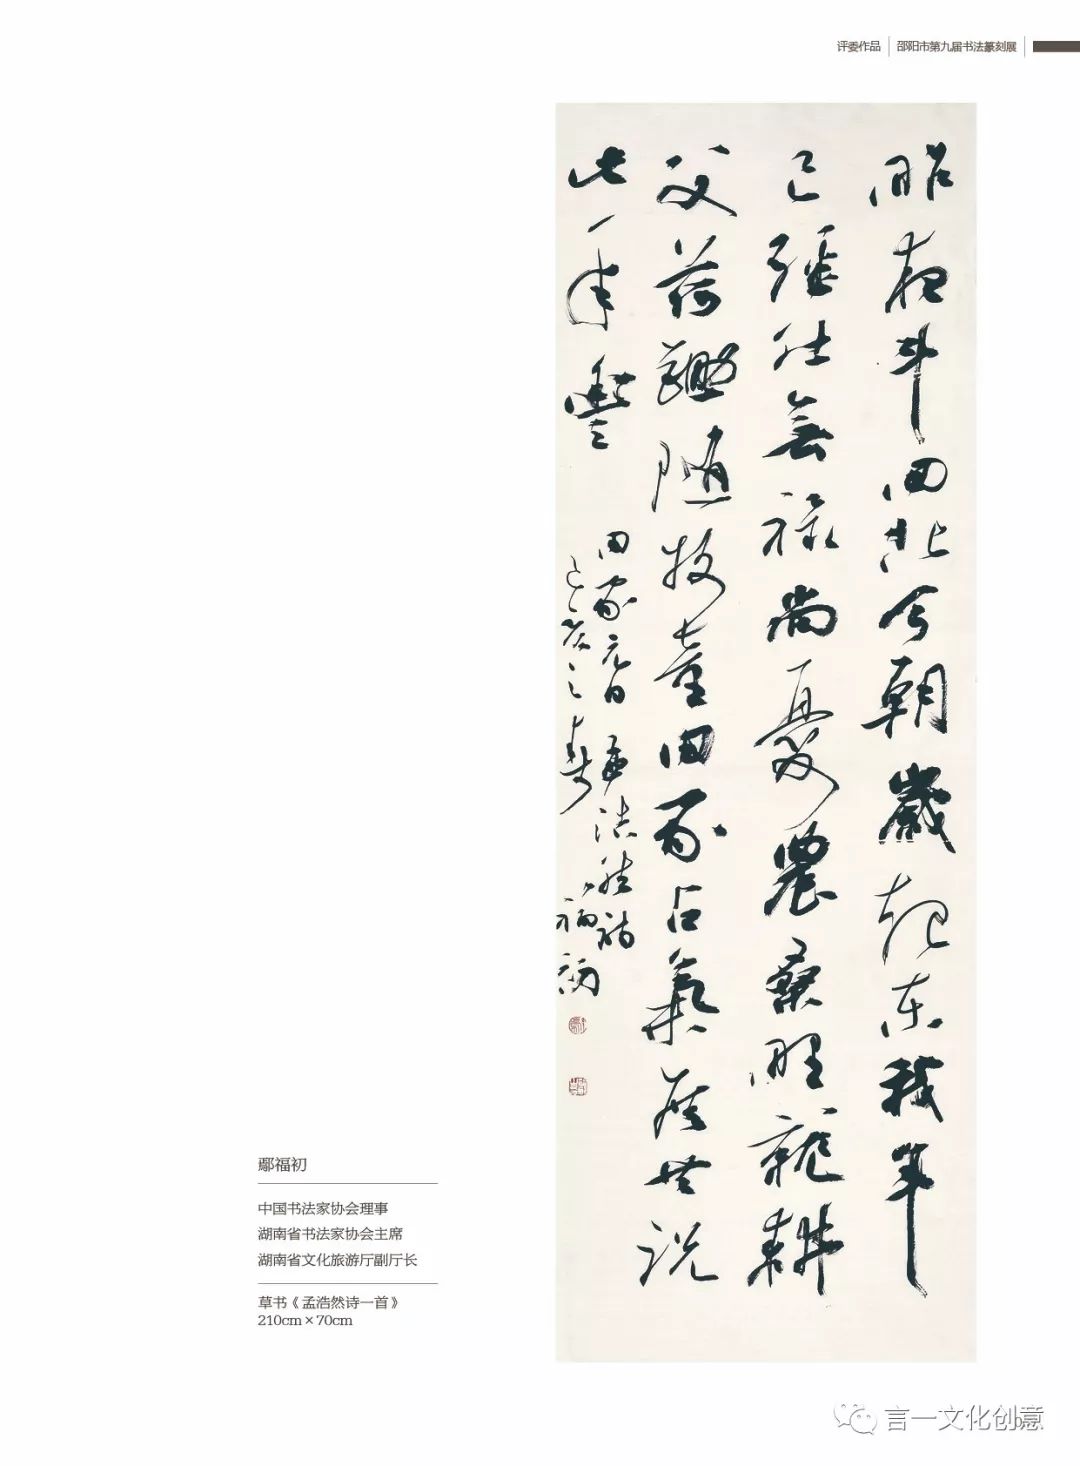 评委作品 邵阳市第九届书法篆刻展
昨夜斗回北今朝歲起東我年
已强仕無禄尚憂農桑野就耕
父荷鋤随牧童田家占氣候共説
此年豐
田家元日 孟浩然詩
己亥之春 福初
鄢福初
中国书法家协会理事
湖南省书法家协会主席
湖南省文化旅游厅副厅长
草书《孟浩然诗一首》
210cm×70cm
言一文化创意